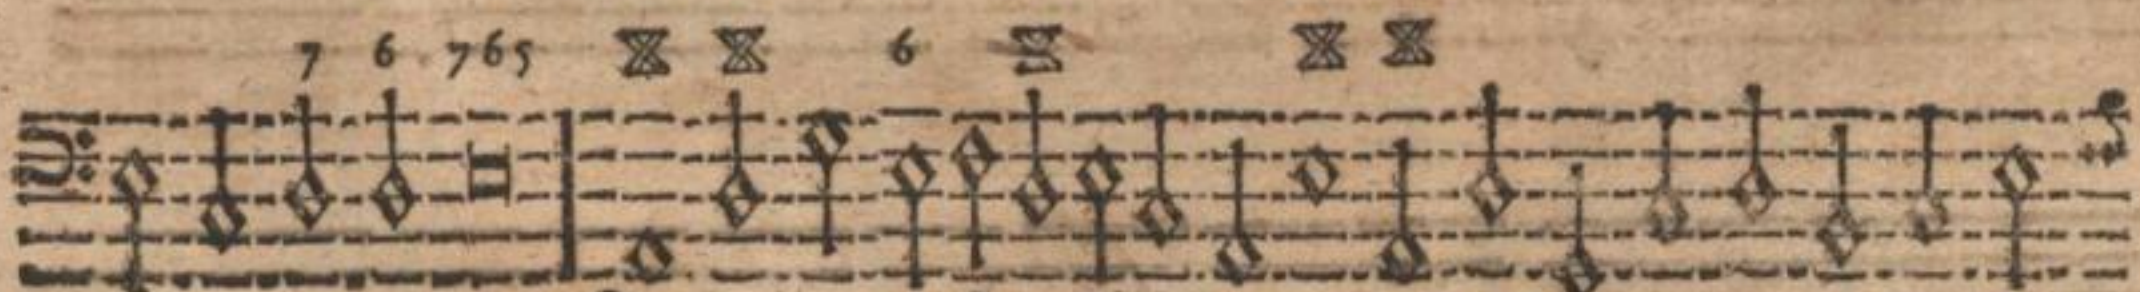 7 6 765 6